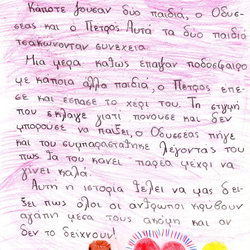 Κάποτε ζουσαν δύο παιδιά, ο Οδυσ-
σέας και ο Πέτρος. Αυτά τα δύο παιδιά
τσακώνονταν συνεχεια.
Μια μερα καθως επαιζαν ποδοσφαιρο
με κάποια άλλα παιδιά, ο Πέτρος επε-
σε και εσπασε το χέρι του. Τη στιγμη
που εκλαιγε γιατί πονουσε και δεν
μπορουσε να παίξει, ο Οδυσσεας πήγε
και του συμπαρασταθηκε λέγοντας του
πως θα του κανει παρέα μεχρι να
γινει καλά.
Αυτη η ιστορία θελει να μας δει-
ξει πως ολοι οι ανθρωποι κρυβουν
αγαπη μεσα τους ακομη και αν
δεν το δειχνουν!